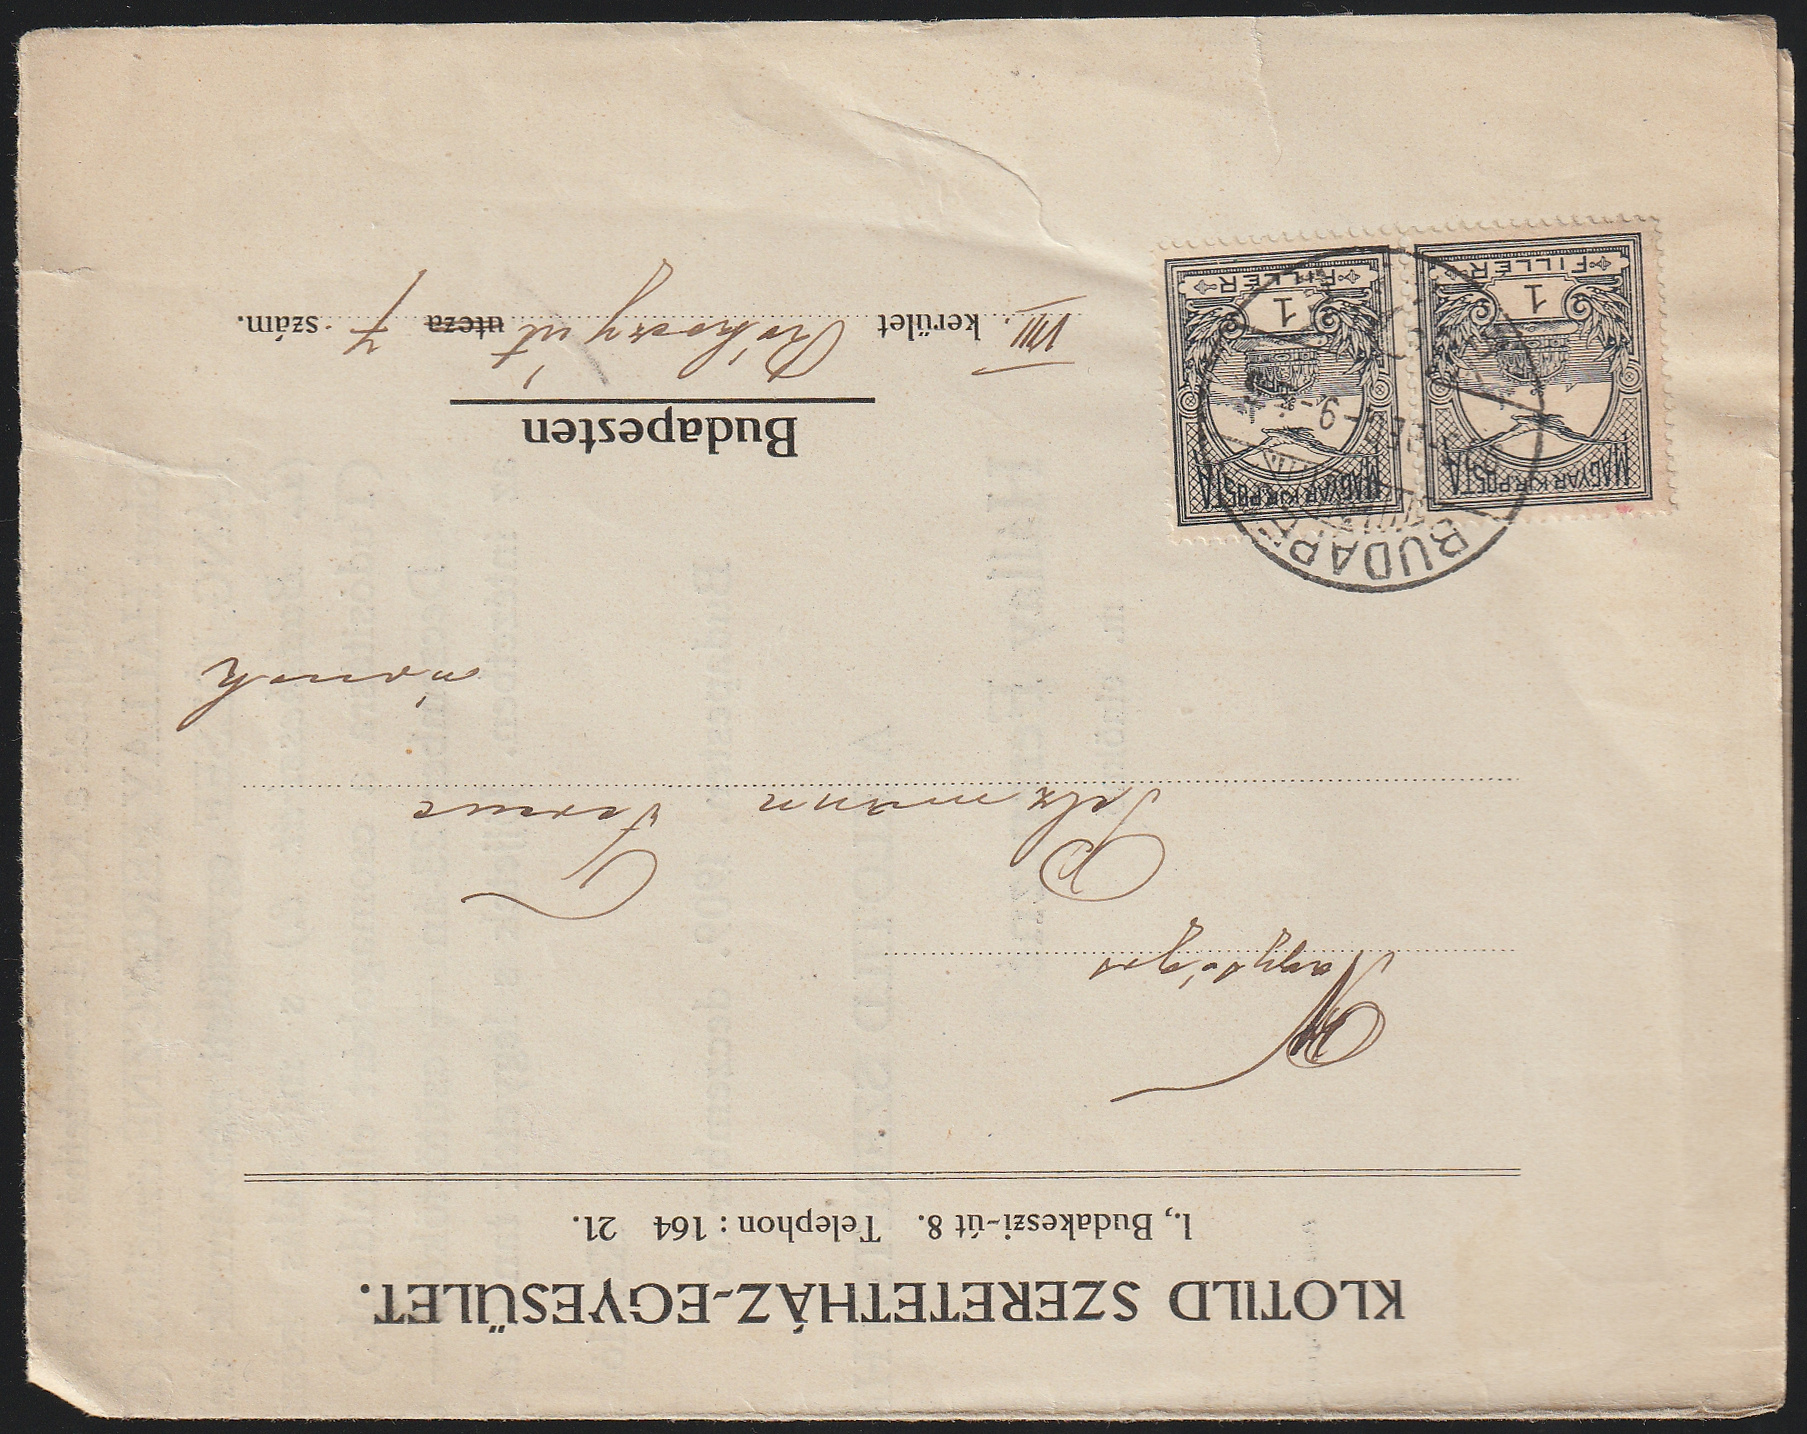 KLOTILD SZERETETHÁZ-EGYESÜLET.
I., Budakeszi-út 8. Telephon: 164 21.
Nagyságos
Ferencz
úrnak
Budapesten
VIII. kerület Rákóczy út utcza 7 szám.
MAGYAR KIR. POSTA
1
FILLÉR
MAGYAR KIR. POSTA
1
FILLÉR
BUDAPEST